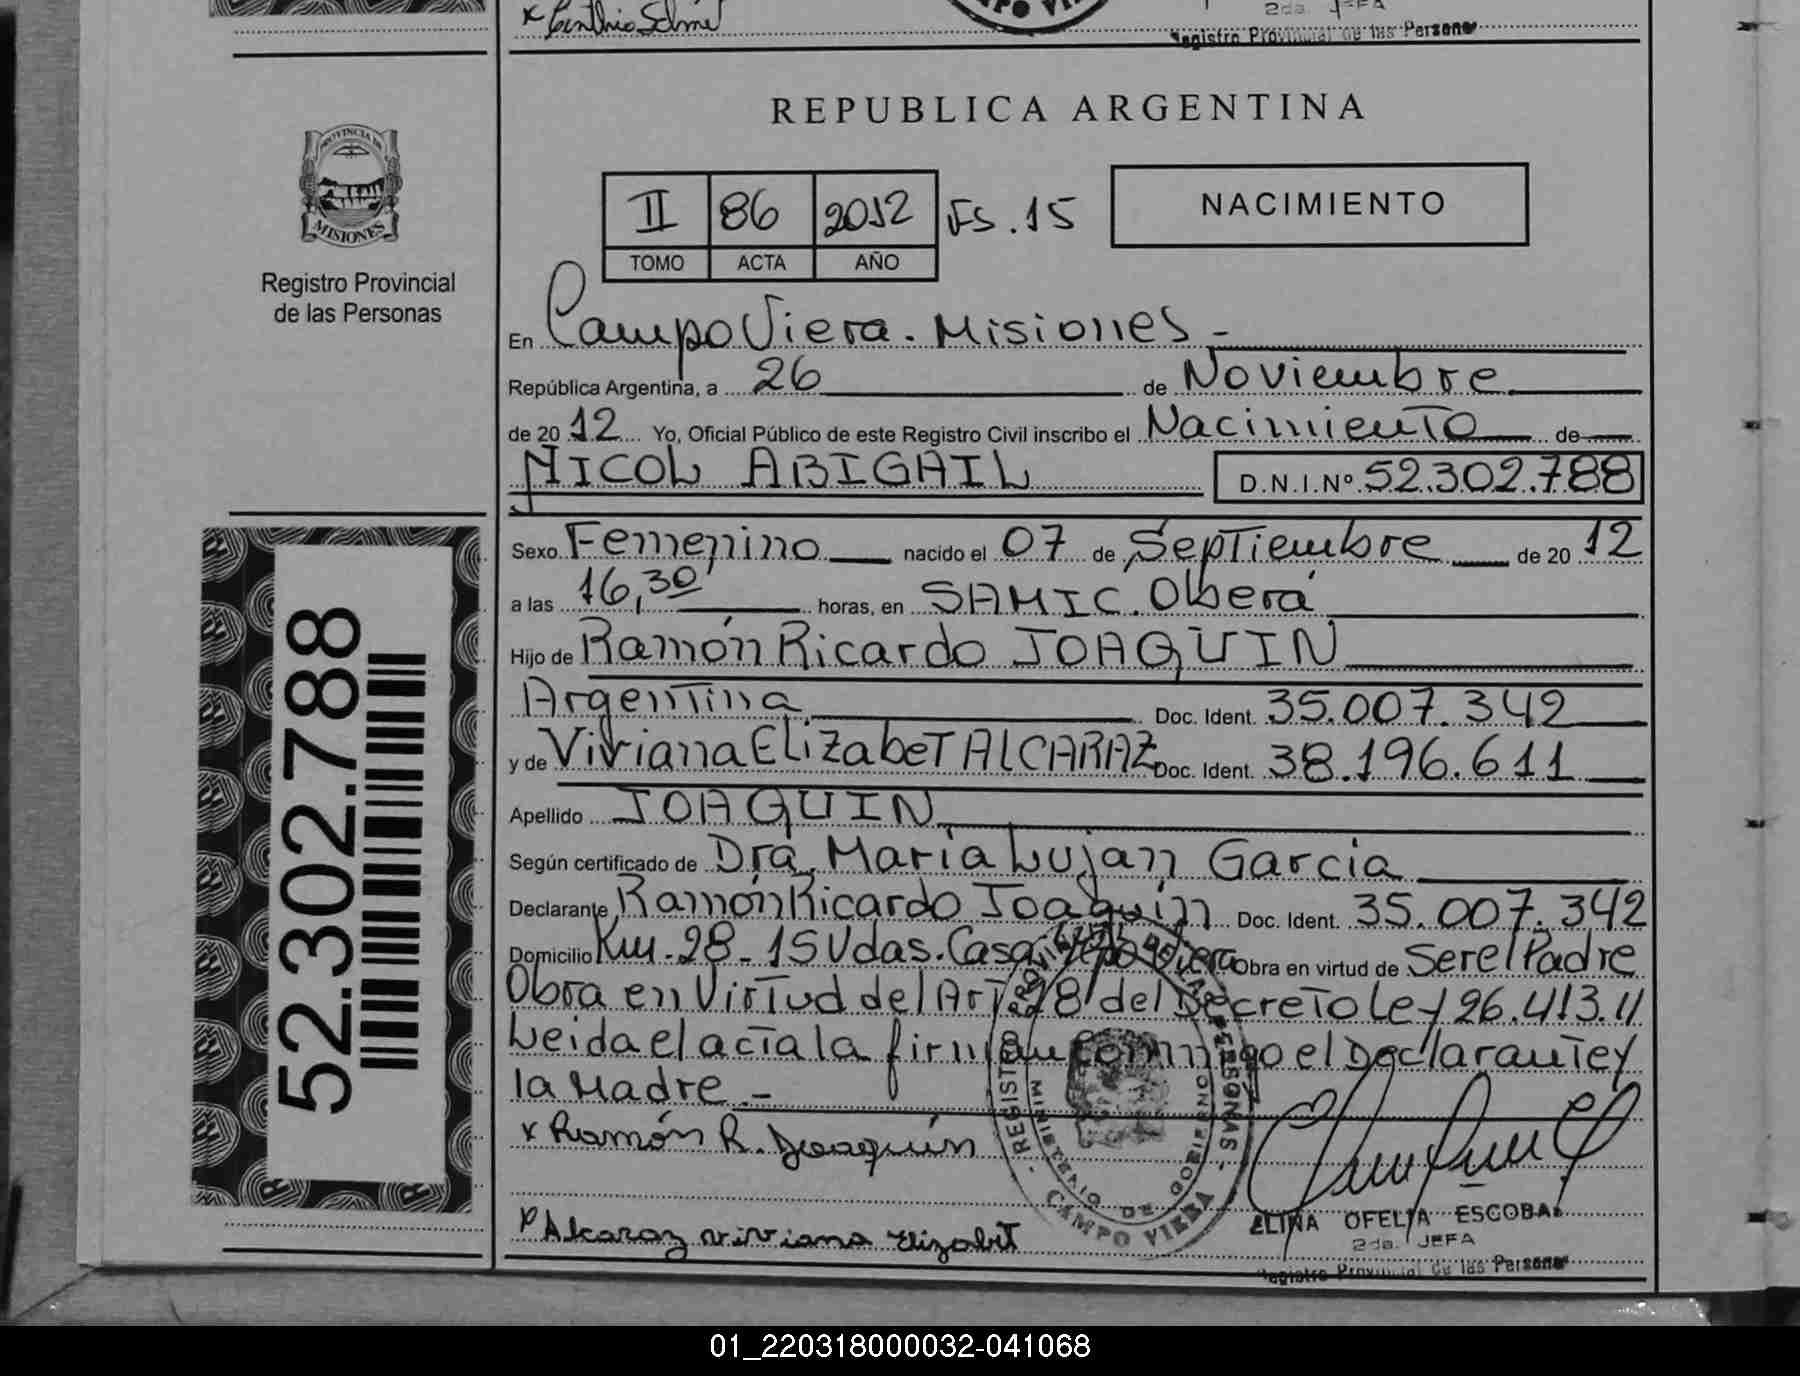 x Cinthia
CAMPO VIERA
2da. JEFA
Registro Provincial de las Personas
PROVINCIA DE
MISIONES
Registro Provincial
de las Personas
REPUBLICA ARGENTINA
II 86 2012 Fs. 15
TOMO ACTA AÑO
NACIMIENTO
En Campo Viera. Misiones -
República Argentina, a 26 de Noviembre
de 2012 Yo, Oficial Público de este Registro Civil inscribo el Nacimiento de
NICOL ABIGAIL D.N.I.Nº 52.302.788
Sexo Femenino nacido el 07 de Septiembre de 2012
a las 16,30 horas, en SAMIC. Oberá
Hijo de Ramón Ricardo JOAQUIN
Argentina Doc. Ident. 35.007.342
y de Viviana Elizabet ALCARAZ Doc. Ident. 38.196.611
Apellido JOAQUIN
Según certificado de Dra. María Lujan Garcia
Declarante Ramón Ricardo Joaquín Doc. Ident. 35.007.342
Domicilio Km. 28 - 15 Vdas. Casa Viera Obra en virtud de Ser el Padre
Obra en Virtud del Art 28 del Decreto Ley 26.413.//
Leida el acta la firman conmigo el Declarante y
la Madre.-
x Ramón R. Joaquín
Alcaraz viviana Elizabet
REGISTRO PROVINCIAL DE LAS PERSONAS
MINISTERIO DE GOBIERNO
CAMPO VIERA
ELINA OFELIA ESCOBAR
2da. JEFA
Registro Provincial de las Personas
52.302.788
01_220318000032-041068